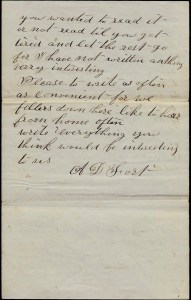 you wanted to read it
or not read til you got
tired and let the rest go
for I have not written anything
very interesting
Please to write as often
as convenient for we
fellers down here like to hear
from home often
write everything you
think would be interesting
to us
A. D. Frost